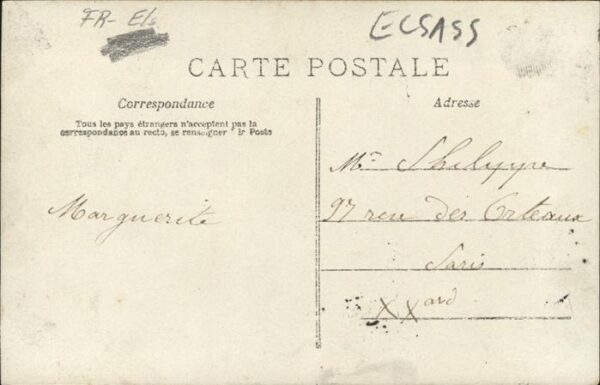 FR- Els
ELSASS
CARTE POSTALE
Correspondance
Tous les pays étrangers n'acceptent pas la
correspondance au recto, se renseigner à la Poste
Marguerite
Adresse
Mr Philyppe
97 reu des Orteaux
Paris
XXard